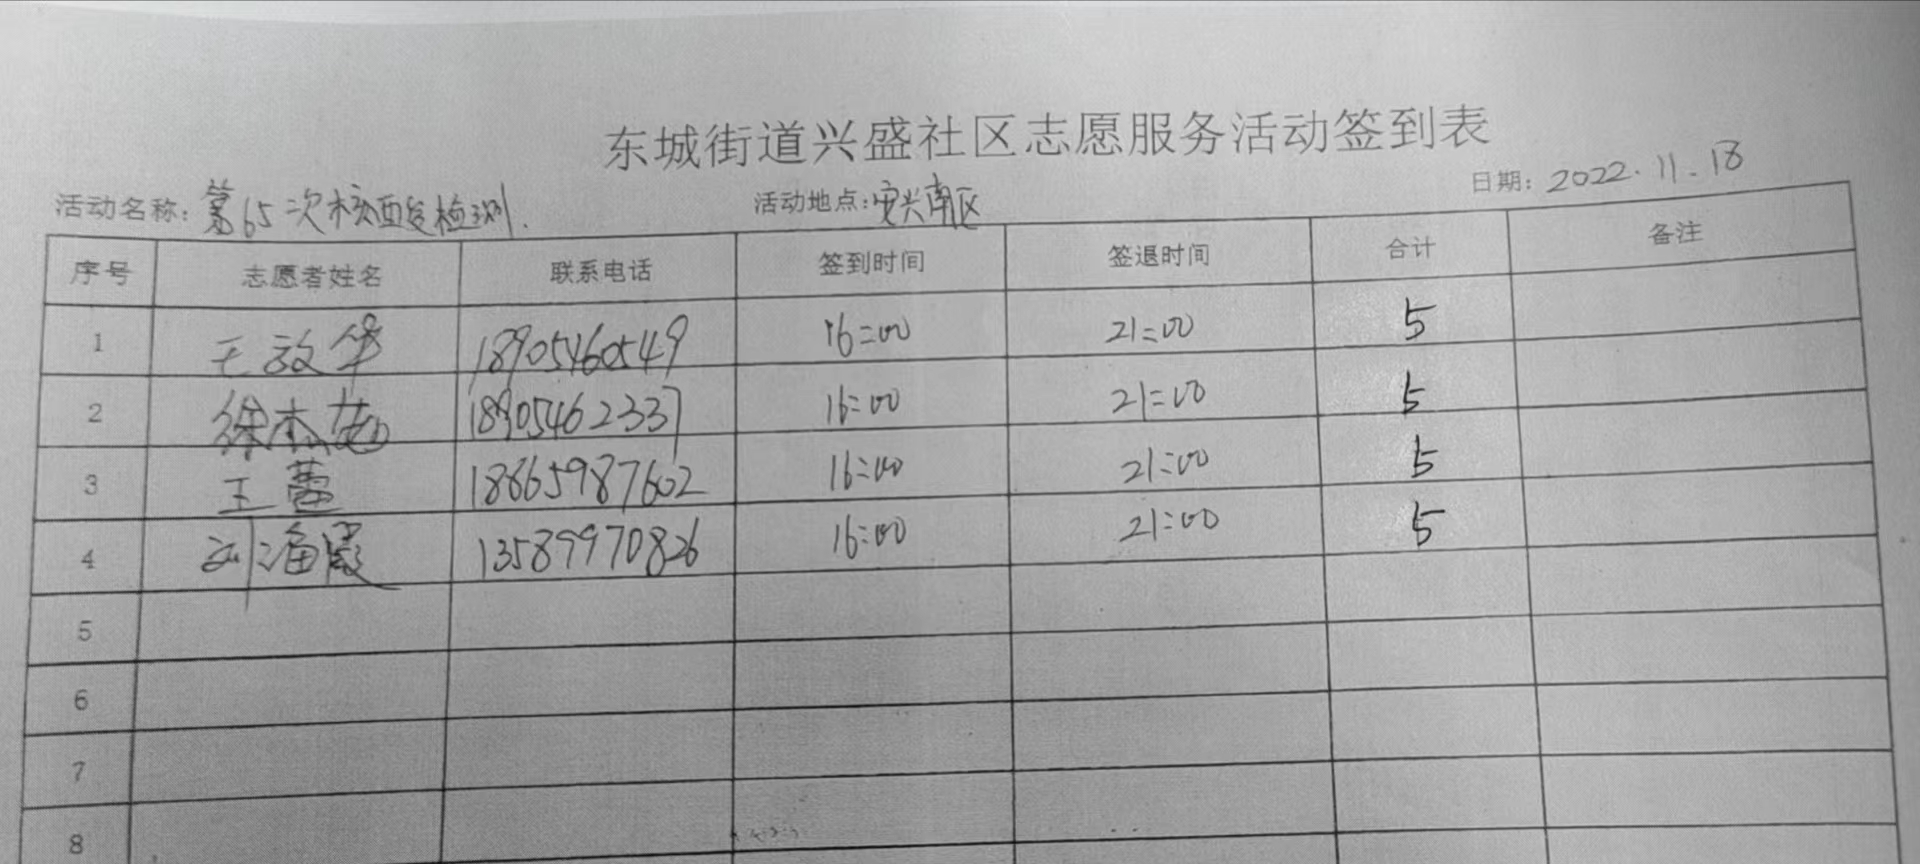 东城街道兴盛社区志愿服务活动签到表
活动名称：第65次核酸检测. 活动地点：安兴南区 日期：2022.11.18
序号 志愿者姓名 联系电话 签到时间 签退时间 合计 备注
1 王效华 18905460549 16:00 21:00 5
2 徐杰 18905462337 16:00 21:00 5
3 王蕾 18865987602 16:00 21:00 5
4 刘潘霞 13589970826 16:00 21:00 5
5
6
7
8